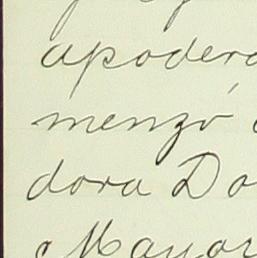 apodera
menzó
dora Do
Mayor